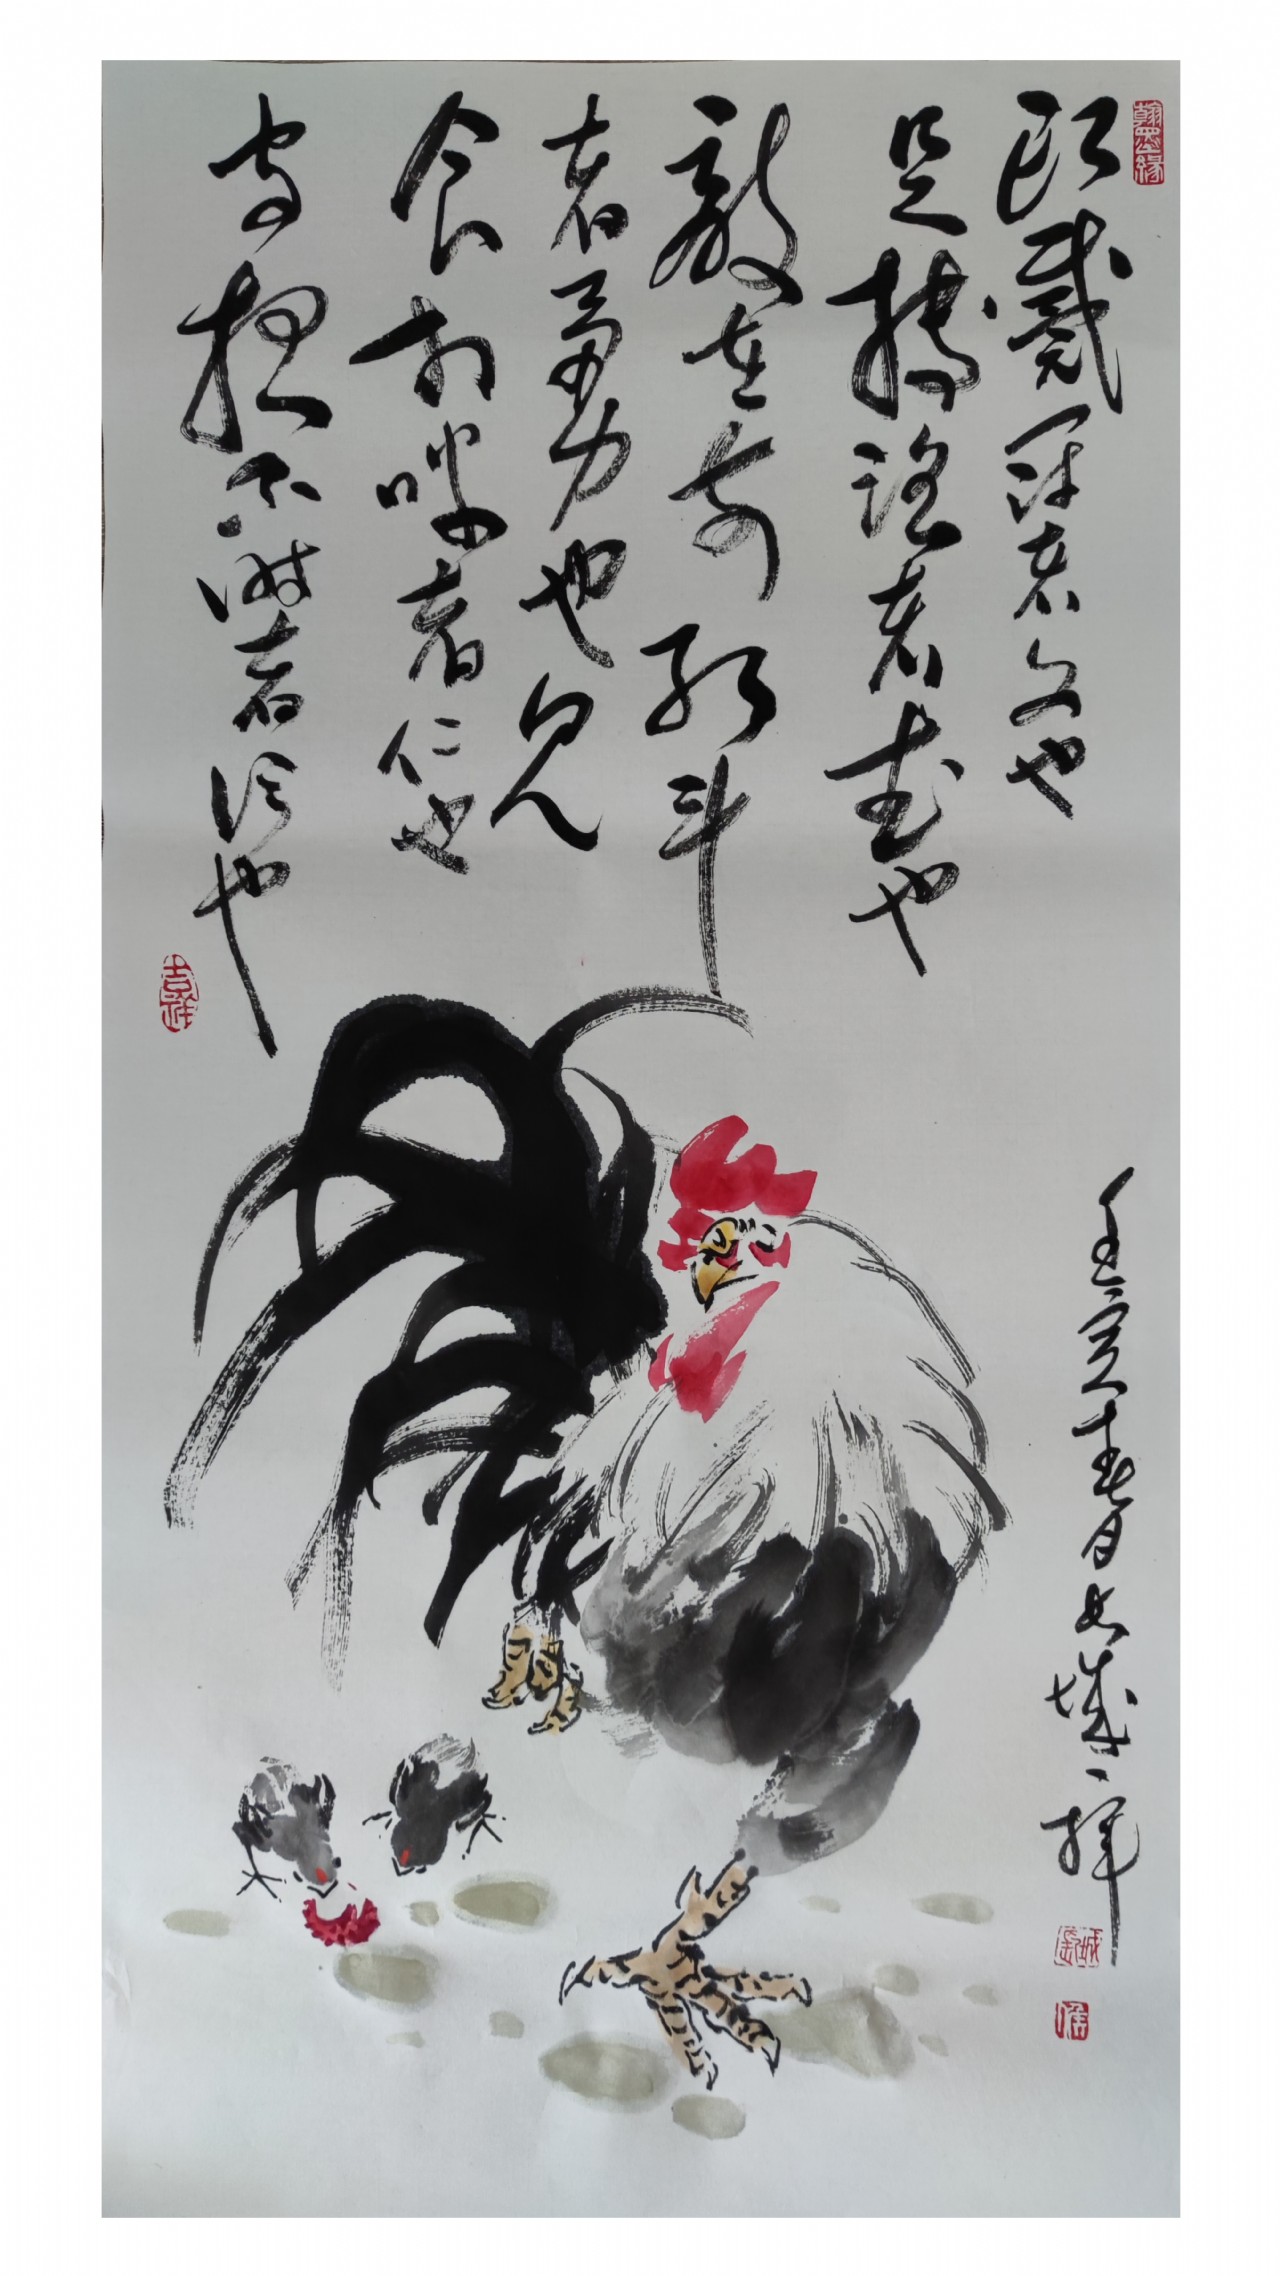 翰墨缘
頭戴冠者文也
足搏距者武也
敵在前敢斗
者勇也见
食相呼者仁也
守夜不時者信也
吉祥
壬寅春月